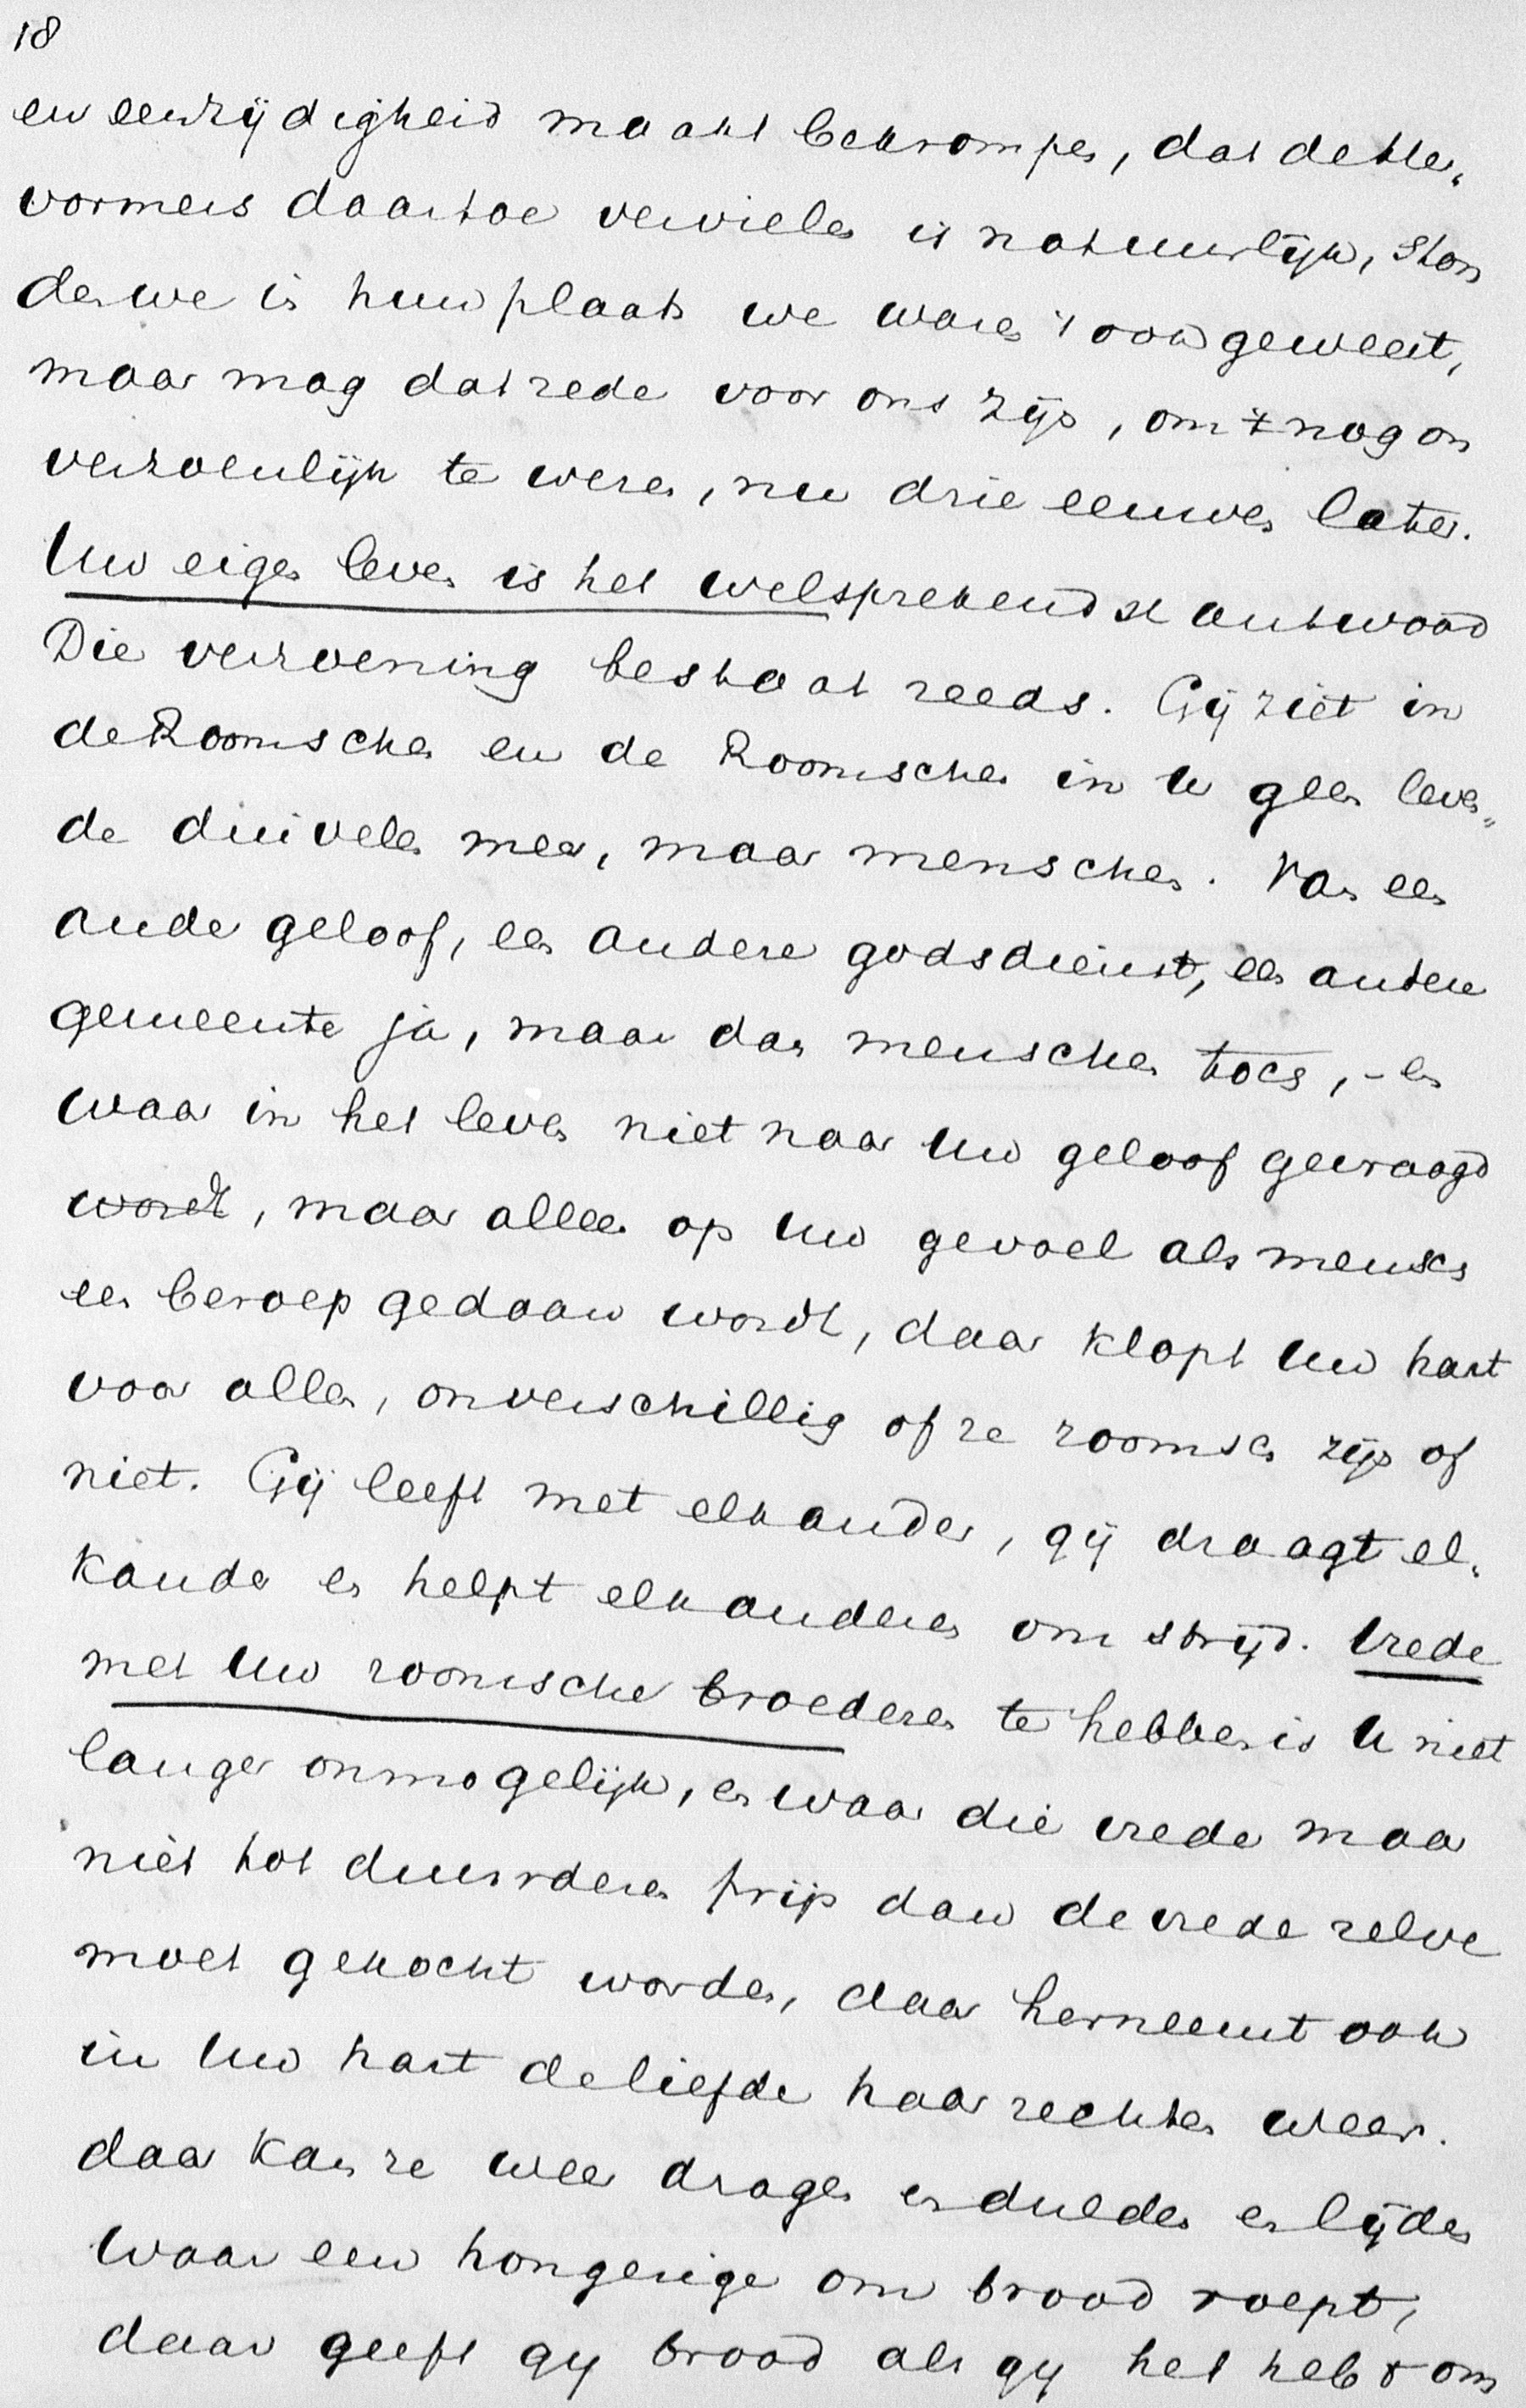 18
en eenzijdigheid maakt bekrompen, dat de Her„
vormers daartoe vervielen is natuurlijk, ston
den we in hun plaats we waren 't ook geweest,
maar mag dat rede voor ons zijn, om 't nog on
verzoenlijk te wezen, nu drie eeuwen later.
Uw eigen leven is het welsprekendst antwoord
Die verzoening bestaat reeds. Gij ziet in
de Roomschen en de Roomschen in U geen leven„
de duivelen meer, maar menschen. Van een
ander geloof, een andere godsdienst, een andere
gemeente ja, maar dan menschen toch, – en
waar in het leven niet naar Uw geloof gevraagd
wordt, maar alleen op Uw gevoel als mensch
een beroep gedaan wordt, daar klopt Uw hart
voor allen, onverschillig of ze roomsch zijn of
niet. Gij leeft met elkander, gij draagt el„
kander en helpt elkanderen om strijd. Vrede
met Uw roomsche broederen te hebben is U niet
langer onmogelijk, en waar die vrede maar
niet tot duurderen prijs dan de vrede zelve
moet gekocht worden, daar herneemt ook
in Uw hart de liefde haar rechten weer.
daar kan ze weer dragen en dulden en lijden
Waar een hongerige om brood roept,
daar geeft gij brood als gij het hebt om